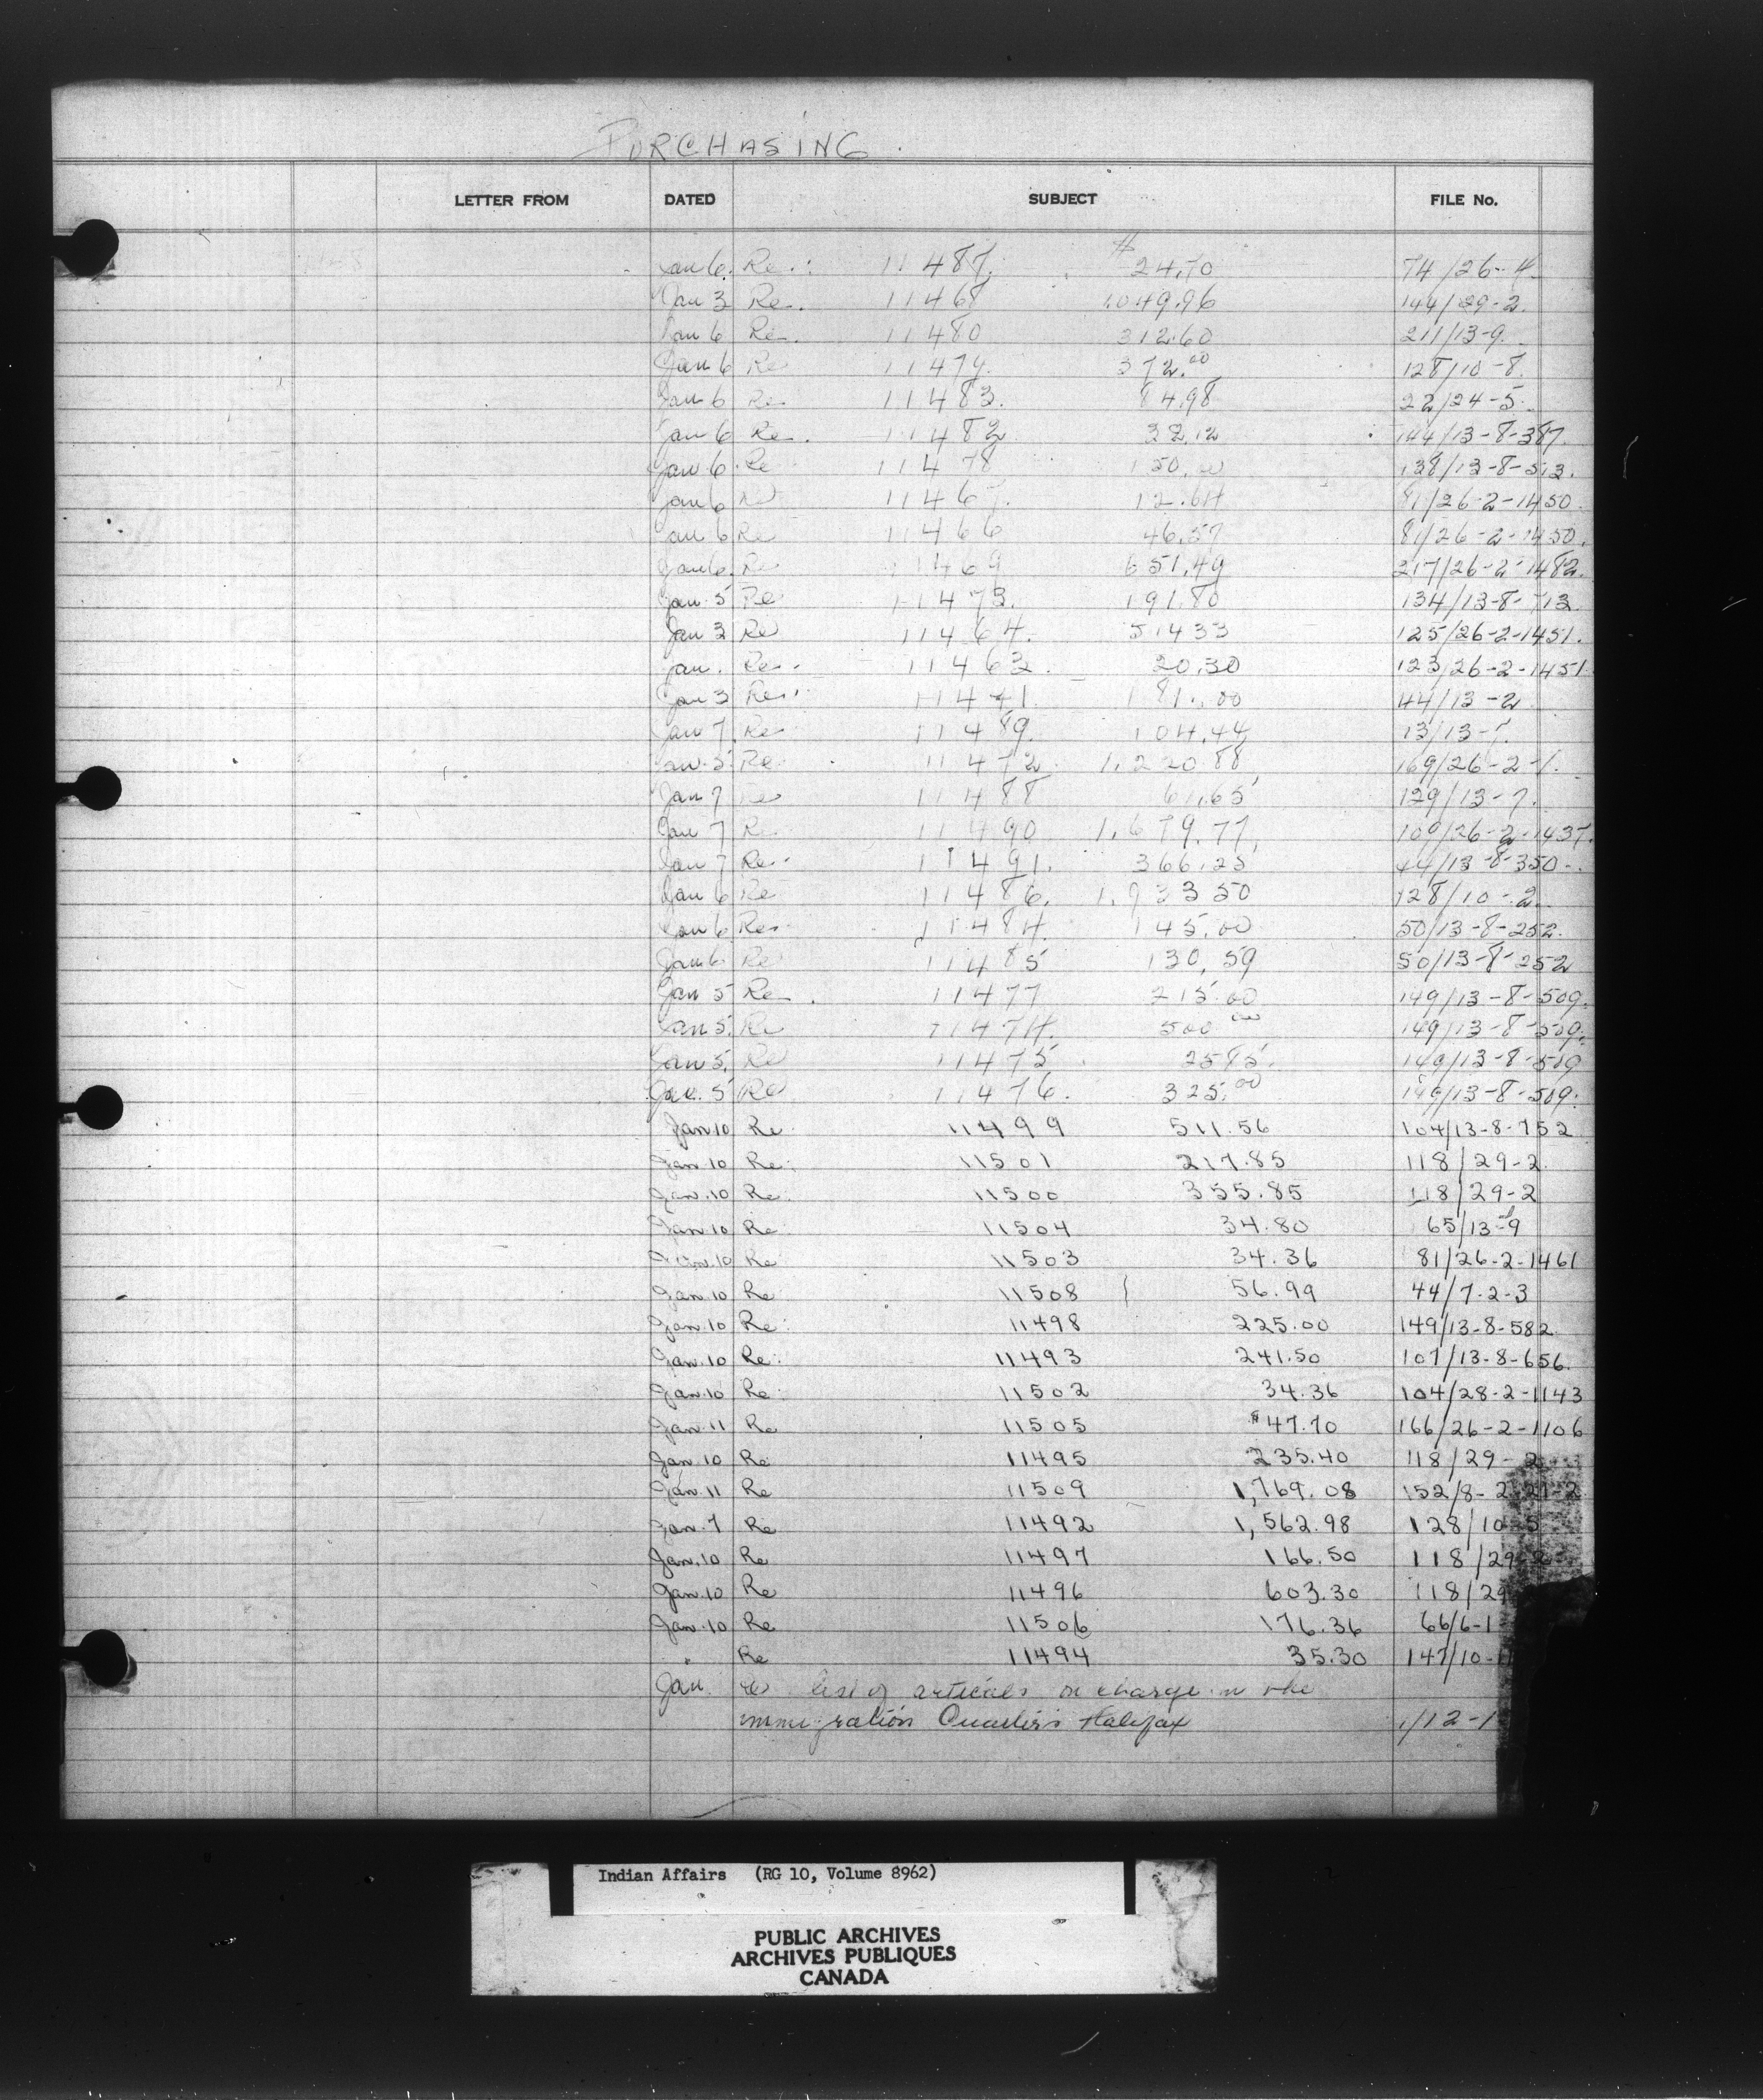 PURCHASING.
LETTER FROM DATED SUBJECT FILE No.
Jan 6. Re.: 11487. $24.70 74/26-4
Jan 3 Re. 11468 1,049.96 144/29-2.
Jan 6 Re. 11480 312.60 211/13-9.
Jan 6 Re 11479. 372.00 128/10-8.
Jan 6 Re 11483. 84.98 22/24-5.
Jan 6 Re. 11482 144/13-8-387.
Jan 6. Re 11478 150.00 138/13-8-513.
Jan 6 Re 12.64 81/26-2-1450.
Jan 6 Re 11466 46.57 81/26-2-1450.
Jan 6. Re 11469 651.49 217/26-2-1482.
Jan. 5 Re 11473. 191.80 134/13-8-713.
Jan 3 Re 11464. 514 33 125/26-2-1451.
Jan. Re. 11463. 20.30 123/26-2-1451.
Jan 3 Re. 181.00 44/13-2
Jan 7. Re 11489. 104.44 13/13-7.
Jan. 5. Re 11472. 1,220.88 169/26-2-1.
Jan 7 Re 11488 61.65 129/13-7.
Jan 7 Re 11490 1,679.77, 109/26-2-1437.
Jan 7 Re. 11491. 366.25 44/13-8-350.
Jan 6 Re 11486. 1,933 50 128/10-2.
Jan 6. Re. 11484. 145.00 50/13-8-252.
Jan 6 Re 11485 130.59 50/13-8-252
Jan 5 Re. 11477 215.00 149/13-8-509.
Jan 5. Re 11474. 500.00 149/13-8-509.
Jan 5. Re 11475. 149/13-8-509
Jan. 5 Re 11476. 325.00 149/13-8-509.
Jan 10 Re. 11499 511.56 104/13-8-752
Jan. 10 Re: 11501 217.85 118/29-2.
Jan. 10 Re. 11500 355.85 118/29-2
Jan. 10 Re 11504 34.80 65/13-9
Jan. 10 Re 11503 34.36 81/26-2-1461
Jan. 10 Re 11508 56.99 44/7-2-3
Jan. 10 Re: 11498 225.00 149/13-8-582
Jan. 10 Re: 11493 241.50 107/13-8-656.
Jan. 10 Re. 11502 34.36 104/28-2-1143
Jan. 11 Re 11505 $47.70 166/26-2-1106
Jan. 10 Re 11495 235.40 118/29-2
Jan. 11 Re 11509 1,769.08 152/8-2-21-2
Jan. 7 Re 11492 1,562.98 128/10-5
Jan. 10 Re 11497 166.50 118/29-2
Jan. 10 Re 11496 603.30 118/29
Jan. 10 Re 11506 176.36 66/6-1
" Re 11494 35.30 147/10-11
Jan. Re list of articals on charge in the
immigration Quarters Halifax 1/12-1
Indian Affairs (RG 10, Volume 8962)
PUBLIC ARCHIVES
ARCHIVES PUBLIQUES
CANADA